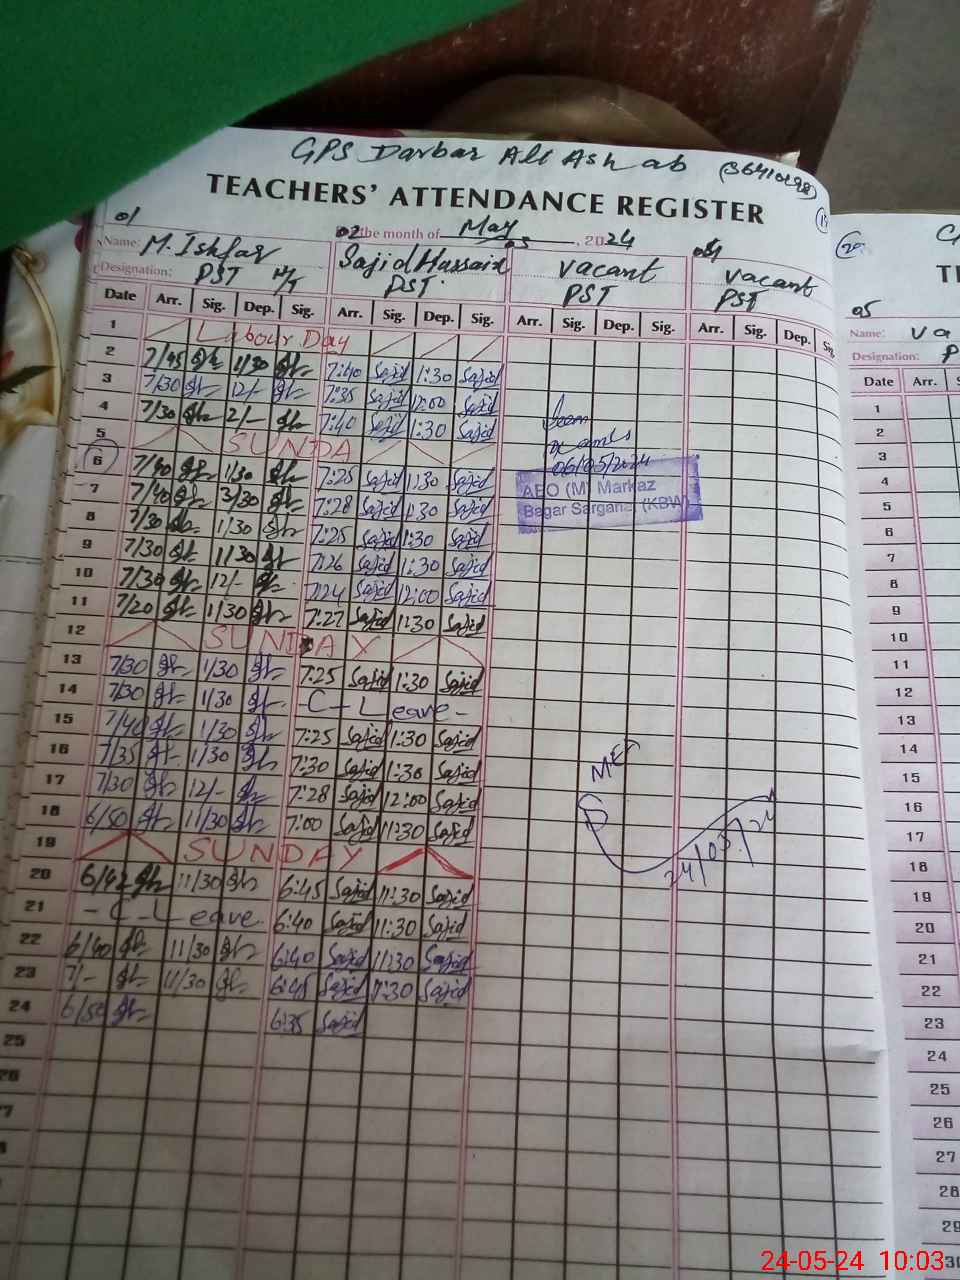 GPS Darbar Ali Ashab (36410198)
TEACHERS' ATTENDANCE REGISTER
01 02 the month of May 05, 2024 04
Name: M. Ishfaq Sajid Hussain vacant vacant
Designation: PST H/T PST PST PST
Date Arr. Sig. Dep. Sig. Arr. Sig. Dep. Sig. Arr. Sig. Dep. Sig. Arr. Sig. Dep.
1 Labour Day
2 7/45 1/30 7:40 Sajid 1:30 Sajid
3 7/30 12/- 7:35 Sajid 12:00 Sajid
4 7/30 2/- 7:40 Sajid 1:30 Sajid
5 SUNDA
6 7/40 1/30 7:25 Sajid 1:30 Sajid
7 7/40 3/30 7:28 Sajid 1:30 Sajid
8 7/30 1/30 7:25 Sajid 1:30
9 7/30 1/30 7:26 Sajid 1:30 Sajid
10 7/30 12/- 7:24 Sajid 12:00 Sajid
11 7/20 1/30 7:27 Sajid 1:30 Sajid
12 SUNDAY
13 7/30 1/30 7:25 Sajid 1:30 Sajid
14 7/30 1/30 - C - Leave -
15 7/40 1/30 7:25 Sajid 1:30 Sajid
16 7/35 1/30 7:30 Sajid 1:30 Sajid
17 7/30 12/- 7:28 Sajid 12:00 Sajid
18 6/50 11/30 7:00 Sajid 11:30 Sajid
19 SUNDAY
20 6/42 11/30 6:45 Sajid 11:30 Sajid
21 - C - Leave. 6:40 Sajid 11:30 Sajid
22 6/40 11/30 6:40 Sajid 11:30 Sajid
23 7/- 11/30 6:45 Sajid 11:30 Sajid
24 6/50 6:35 Sajid
25
26
06/05/2024
AEO (M) Markaz
Bagar Sargana (KBW)
24/05/24
05
Name: va
Designation: P
Date Arr. S
1
2
3
4
5
6
7
8
9
10
11
12
13
14
15
16
17
18
19
20
21
22
23
24
25
26
27
28
29
30
24-05-24 10:03